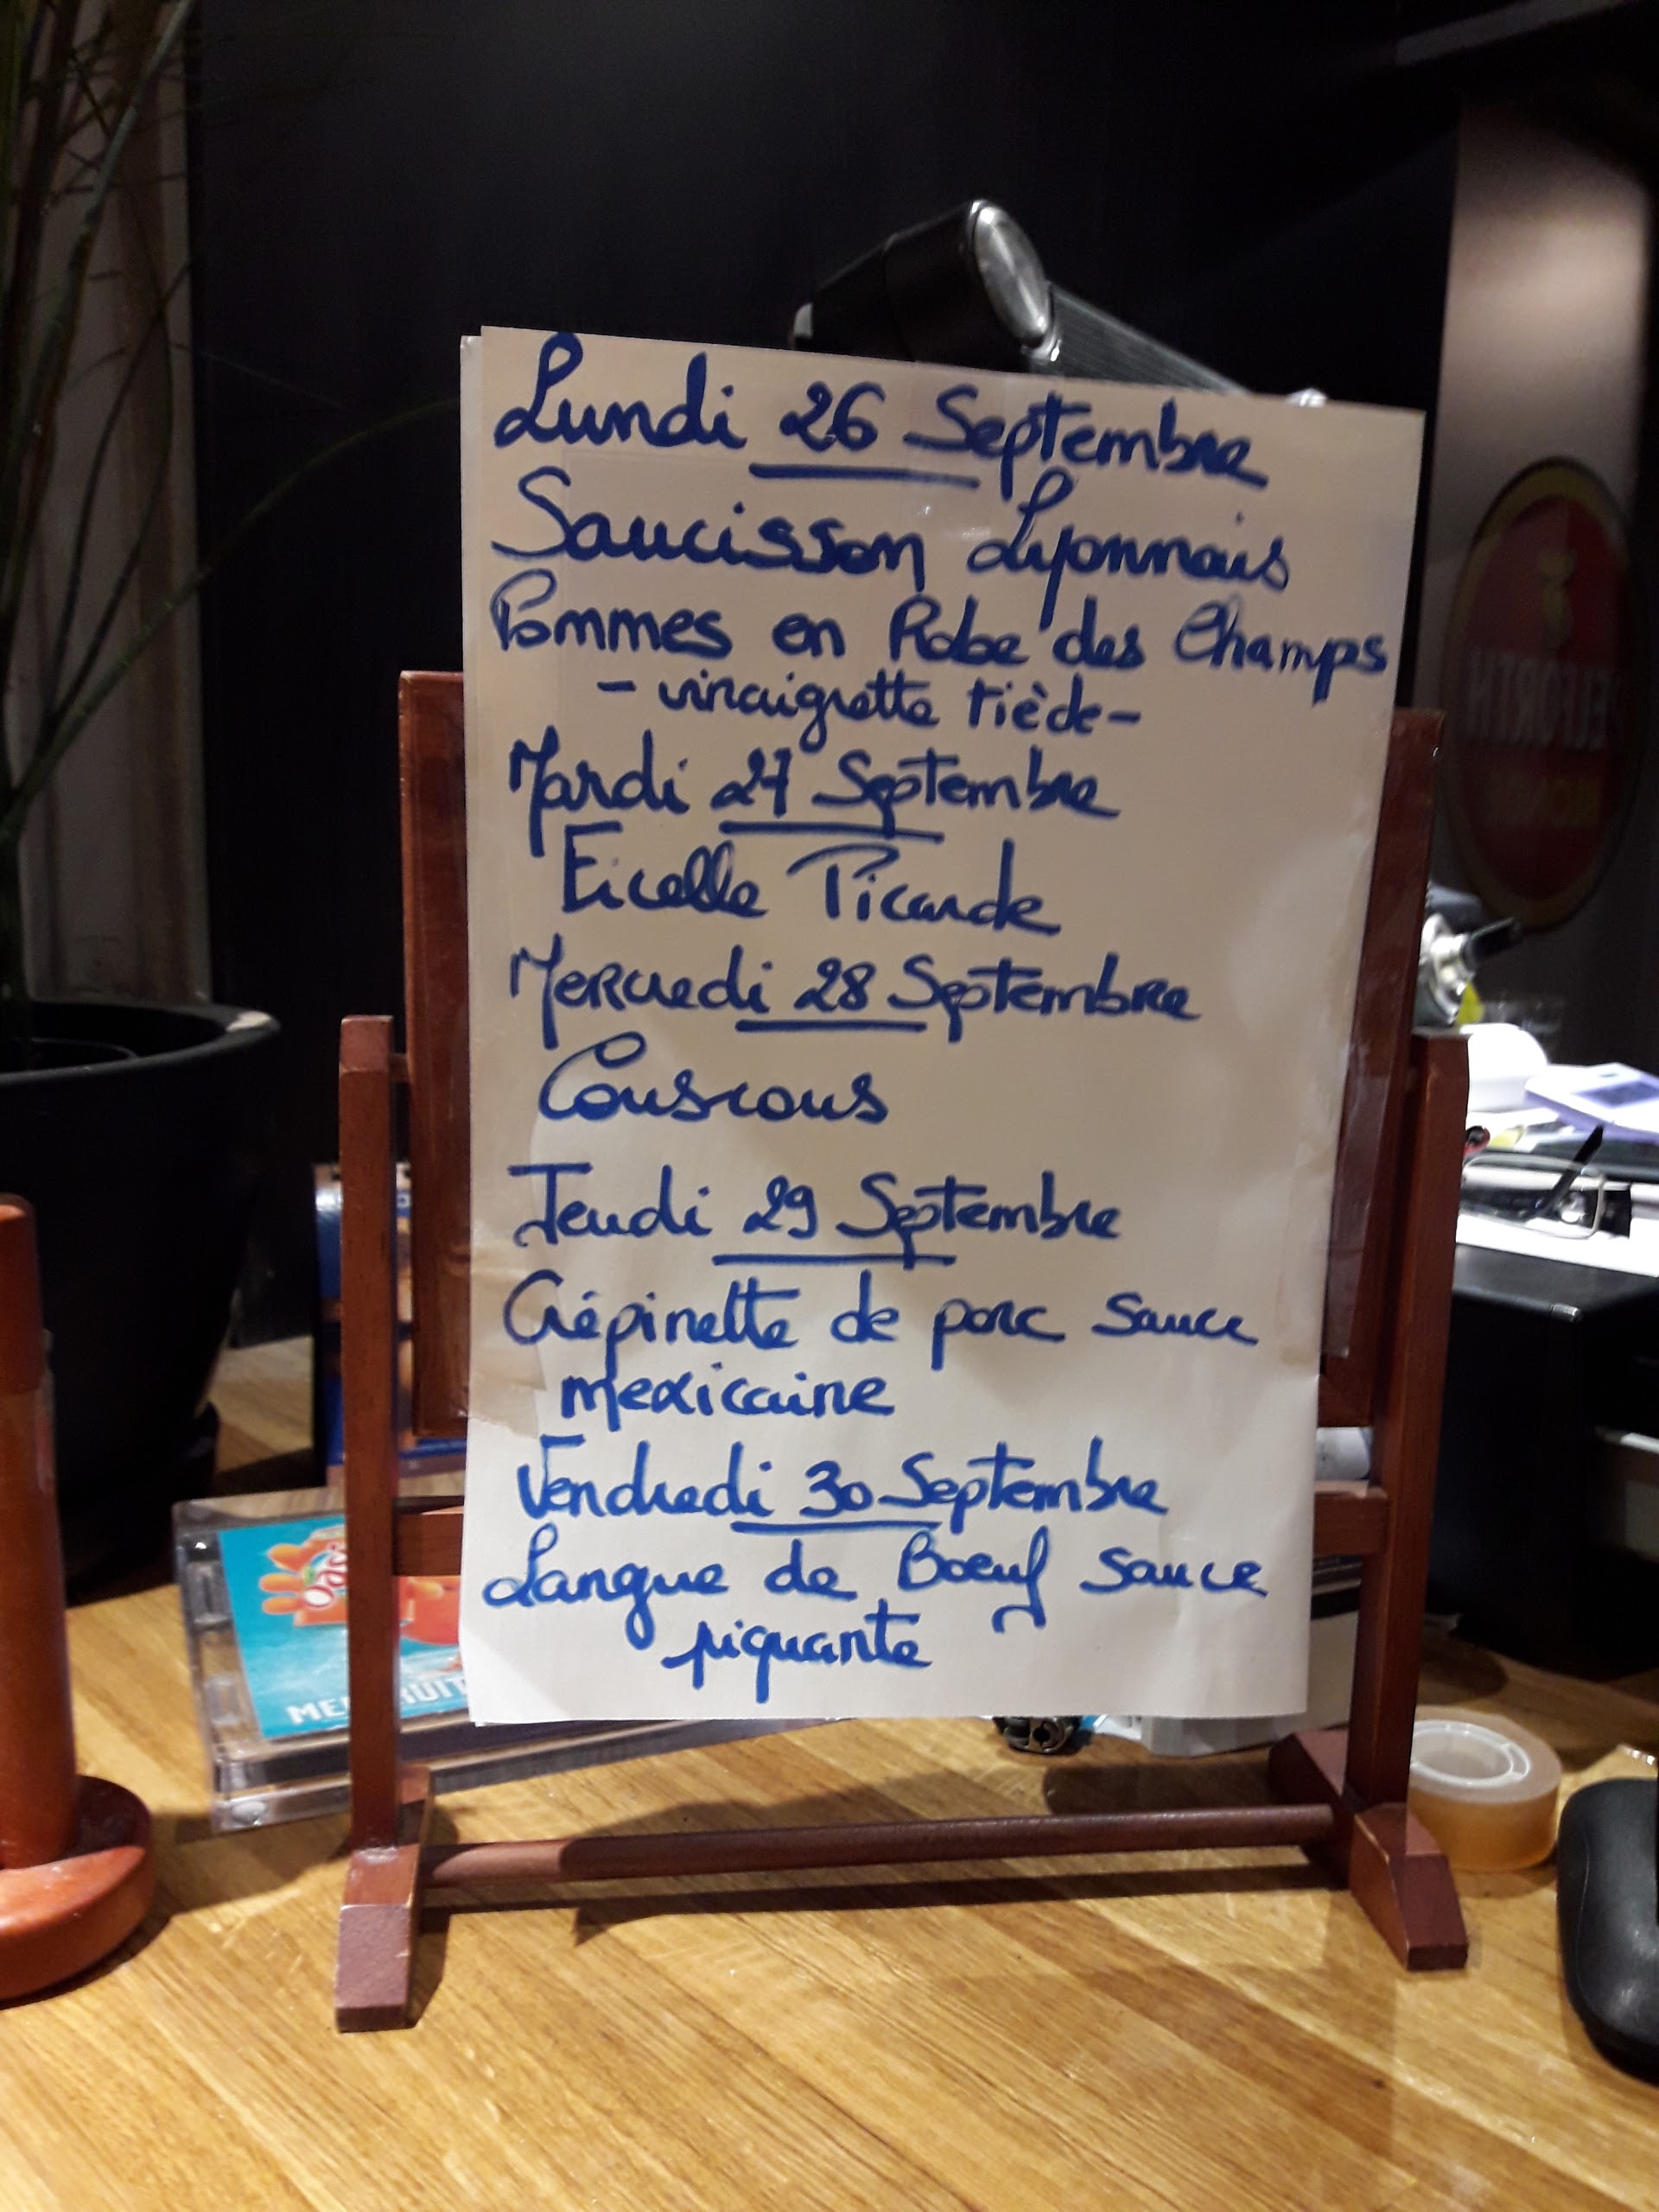 Lundi 26 Septembre
Saucisson Lyonnais
Pommes en Robe des Champs
- vinaigrette tiède -
Mardi 27 Septembre
Ficelle Picarde
Mercredi 28 Septembre
Couscous
Jeudi 29 Septembre
Crépinette de porc sauce
mexicaine
Vendredi 30 Septembre
Langue de Boeuf sauce
piquante
Oasis